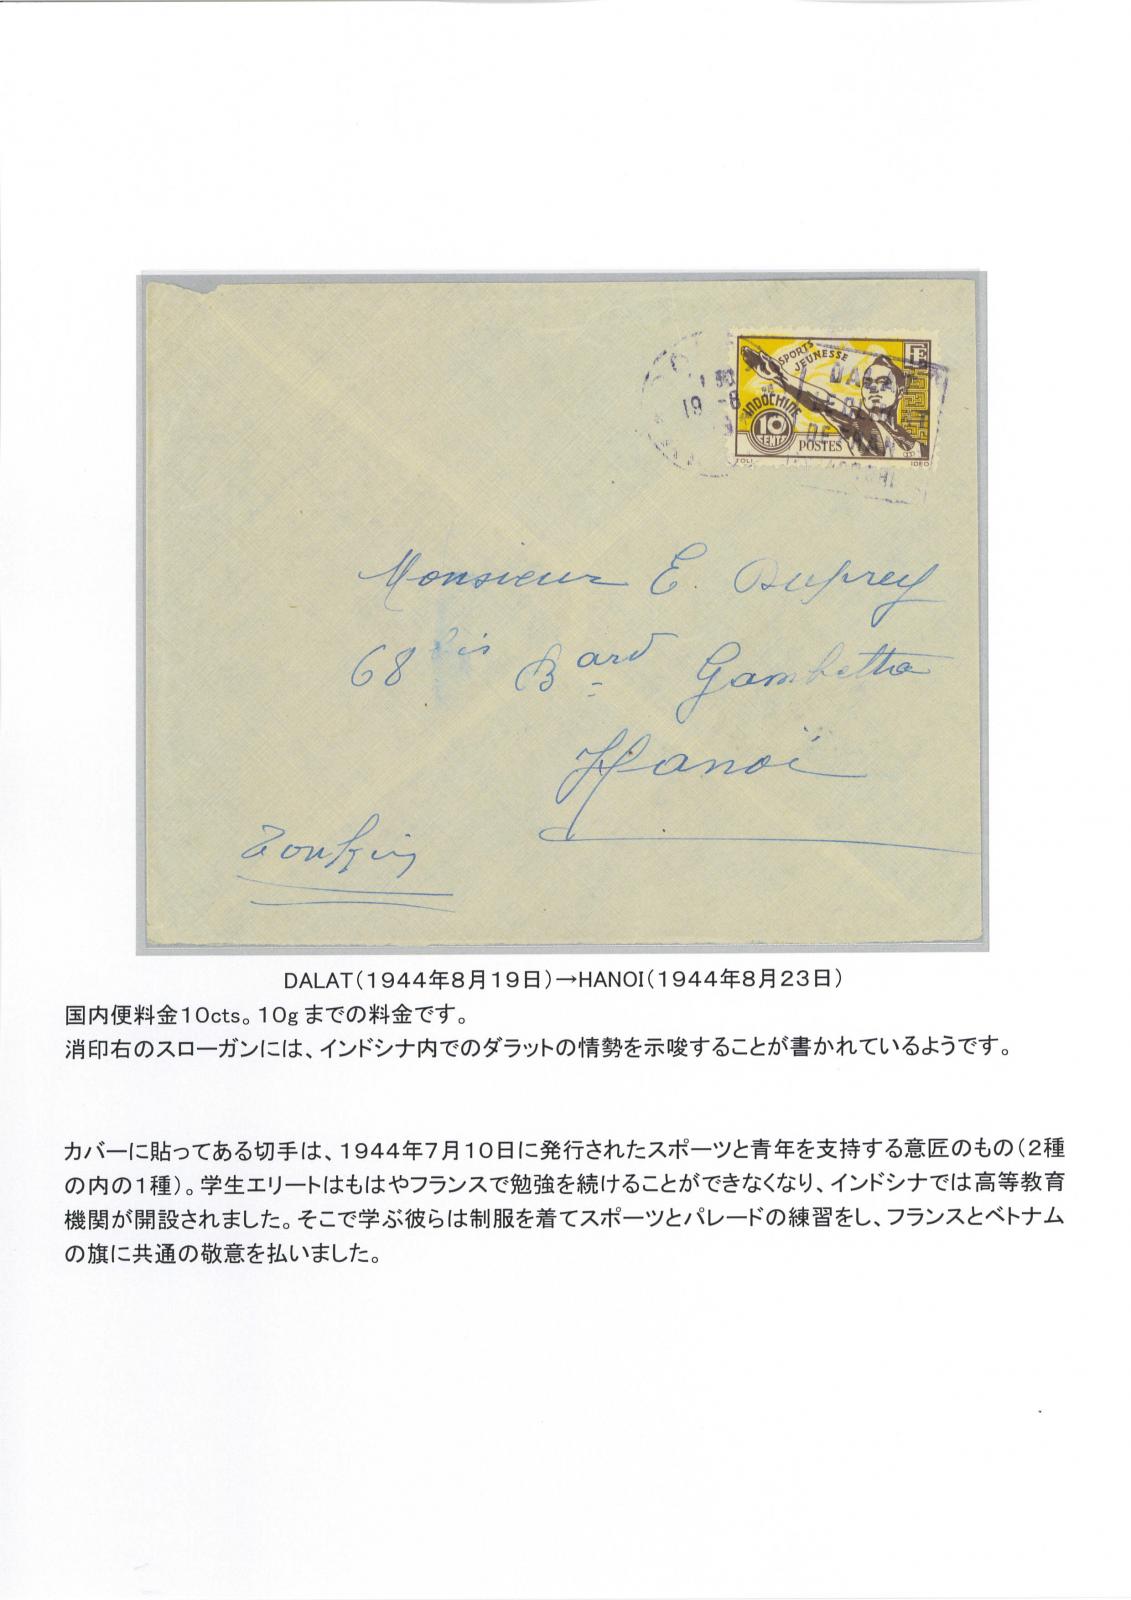 19 8
SPORTS
JEUNESSE
EF
DALAT
INDOCHINE
LE CLIM
10
CENTS
DE FRAN
POSTES
IDEO
Monsieur E. Duprey
68 bis Bard Gambetta
Hanoï
Tonkin
DALAT（1944年8月19日）→HANOI（1944年8月23日）
国内便料金10cts。10gまでの料金です。
消印右のスローガンには、インドシナ内でのダラットの情勢を示唆することが書かれているようです。
カバーに貼ってある切手は、1944年7月10日に発行されたスポーツと青年を支持する意匠のもの（2種
の内の1種）。学生エリートはもはやフランスで勉強を続けることができなくなり、インドシナでは高等教育
機関が開設されました。そこで学ぶ彼らは制服を着てスポーツとパレードの練習をし、フランスとベトナム
の旗に共通の敬意を払いました。